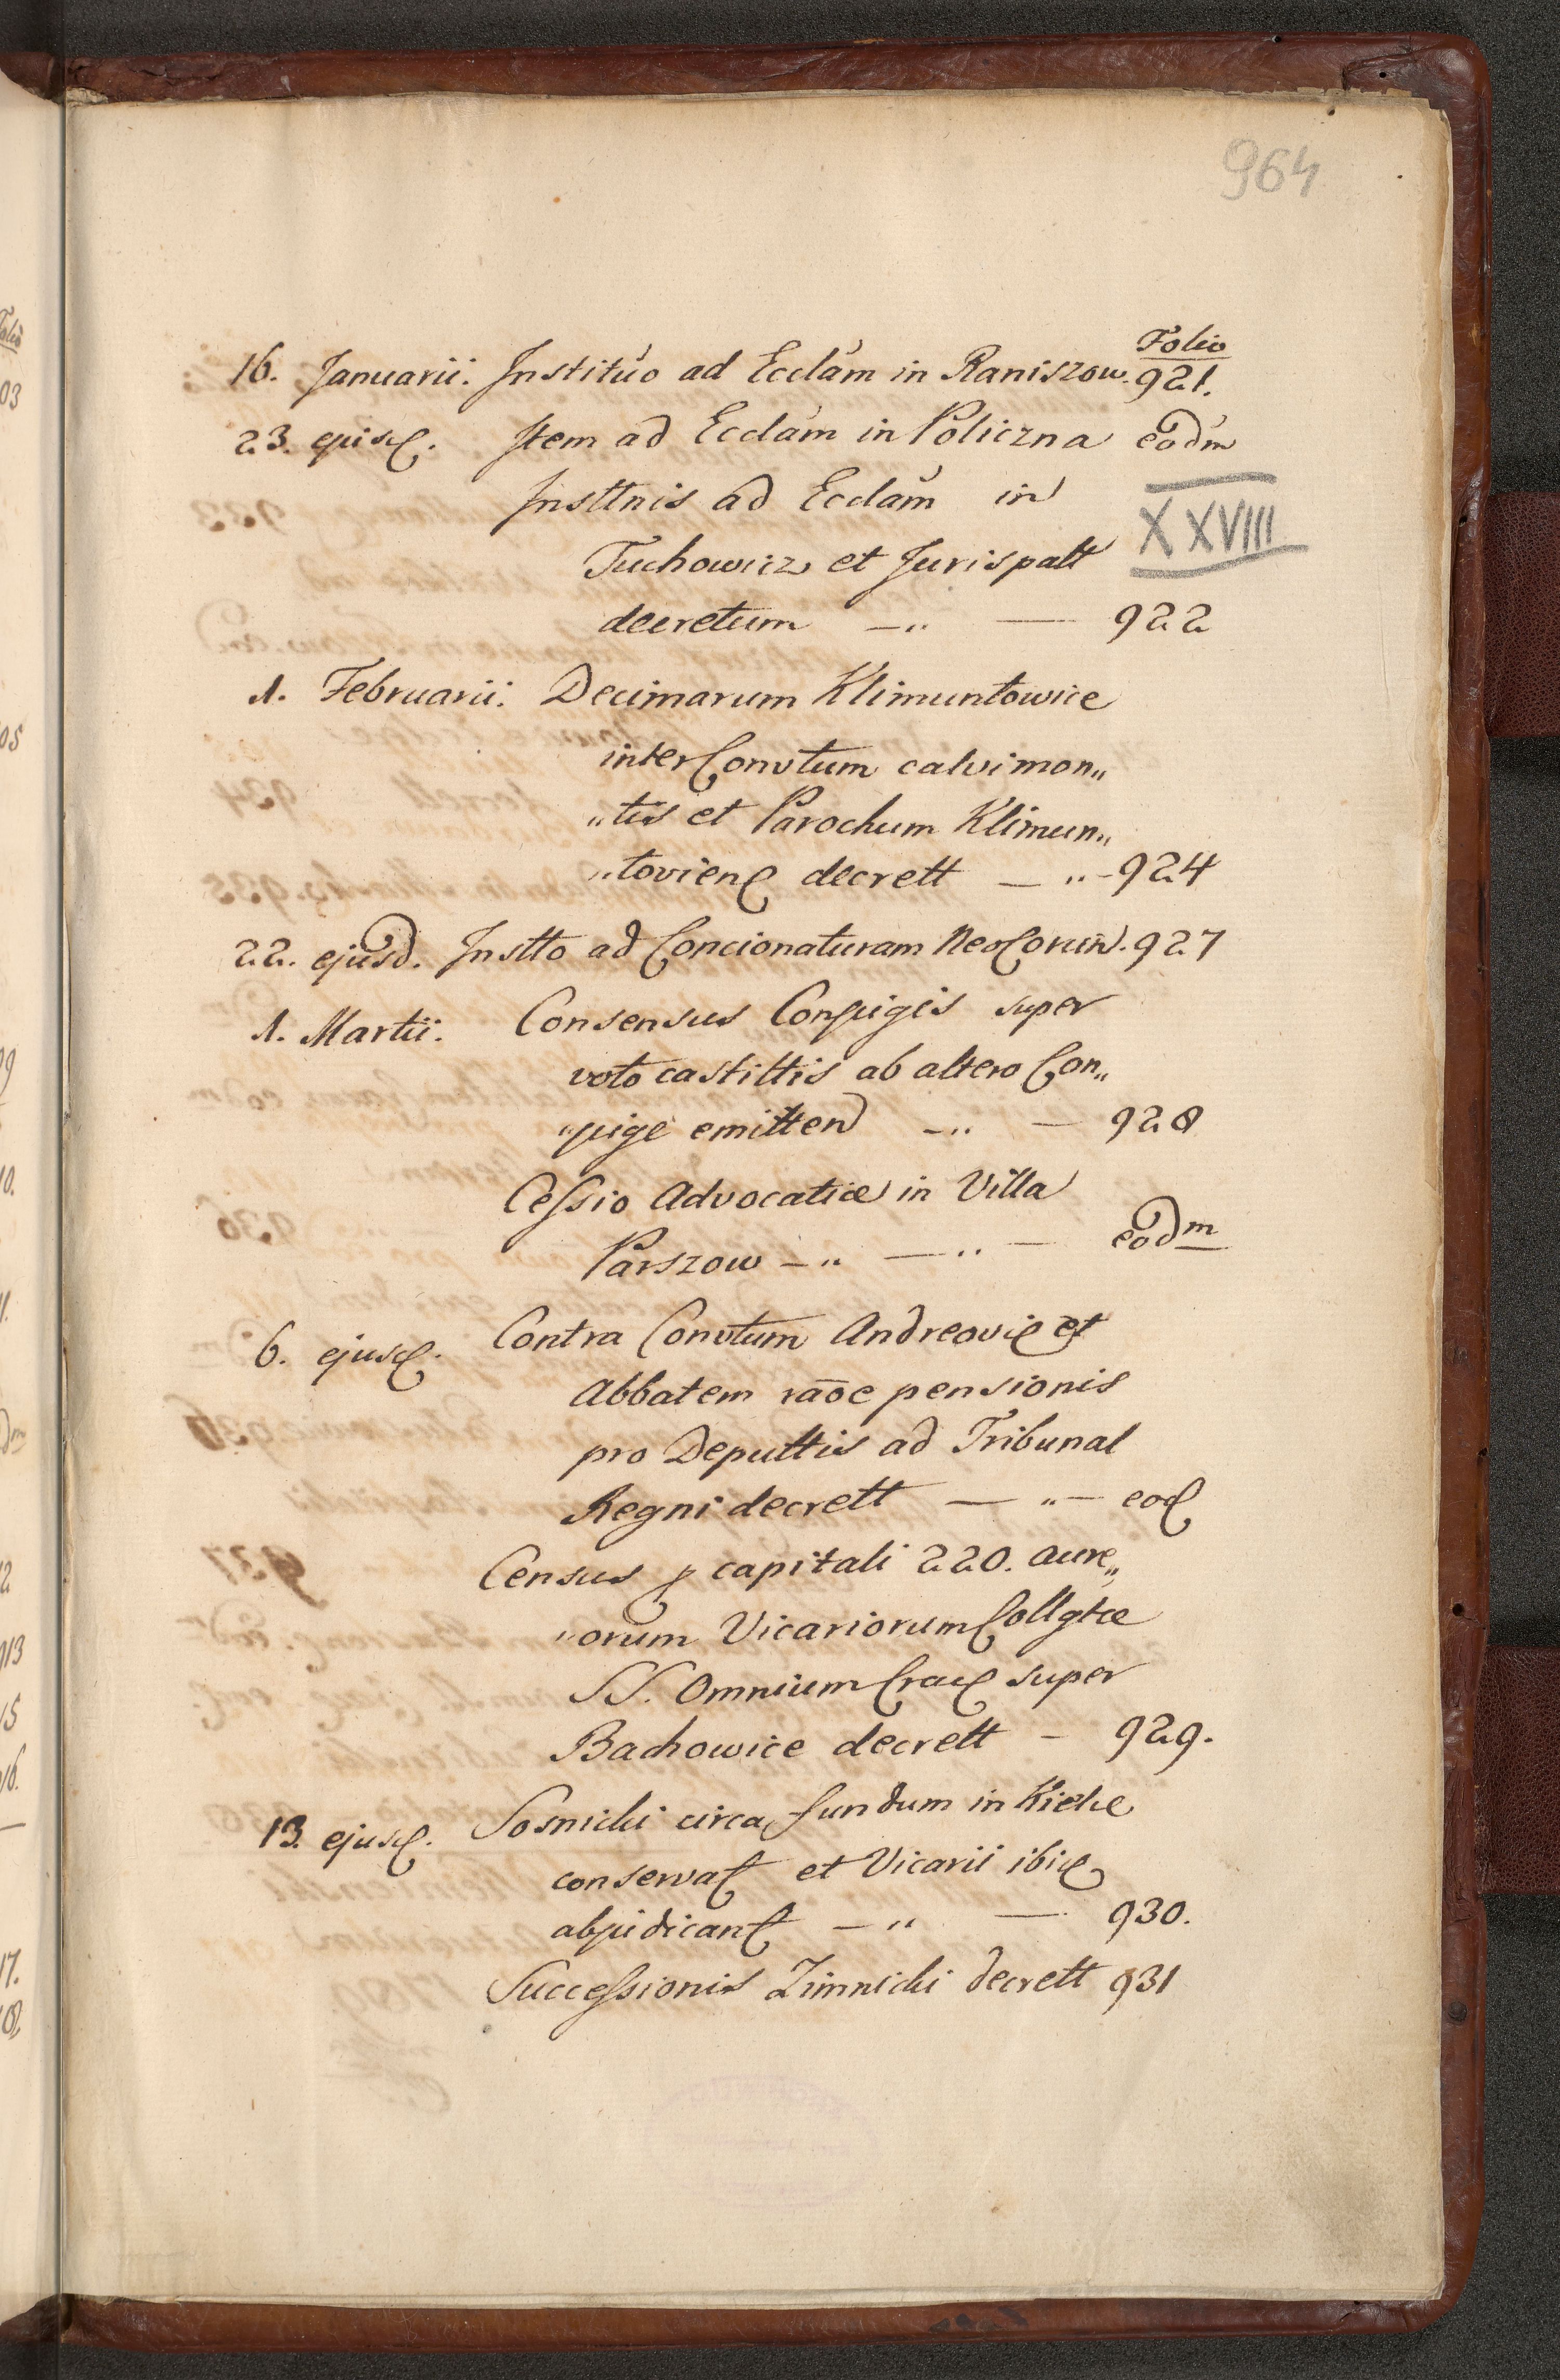 964
Folio
16. Januarii. Institúo ad Ecclám in Raniszow. 921.
23. ejusd. Item ad Ecclám in Policzna eodm
Insttnis ad Ecclám in
XXVIII
Tuchowicz et Jurispatt
decretum —„ — 922
1. Februarii. Decimarum Klimuntowice
inter Convtum calvimon„
„tis et Parochum Klimun„
„toviens decrett — „ - 924
22. ejusd. Instto ad Concionaturam NeoCorcin. 927
1. Martii. Consensus Conjugis super
voto castittis ab altero Con„
„juge emittend —„ — 928
Cessio Advocatiæ in Villa
Parszow —„ —„ — eodm
6. ejusd. Contra Convtum Andreovien et
Abbatem raõe pensionis
pro Deputtis ad Tribunal
Regni decrett — „ — eod
Census p capitali 220. aure„
„orum Vicariorum Collgtæ
SS. Omnium Crac super
Bachowice decrett — 929.
13. ejusd. Sosnicki circa fundum in Kielce
conservat et Vicarii ibid
abjudicant —„ — 930.
Successionis Zimnicki decrett 931